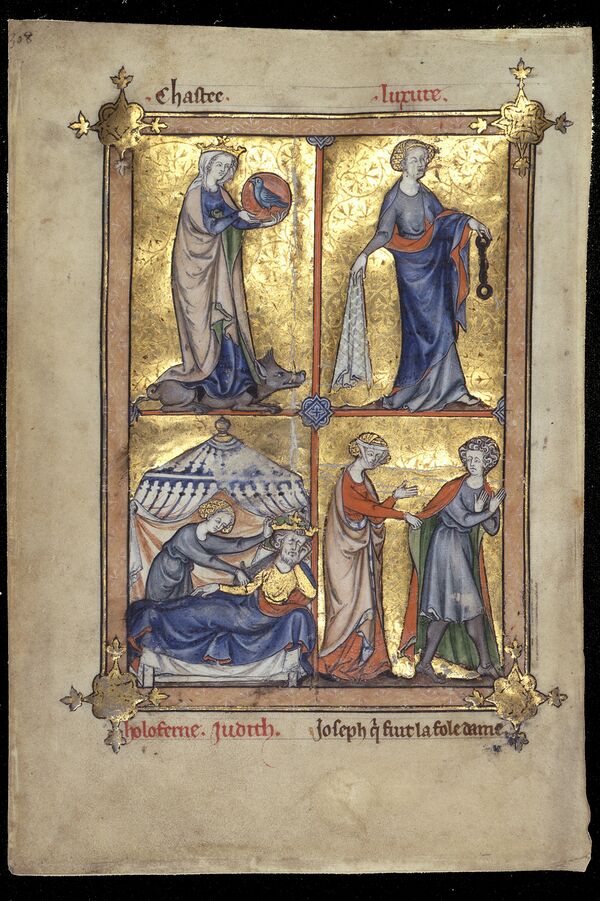 308
·Chastee·
·luxure·
holoferne· Judith·
Joseph q̃ fuit la fole dame